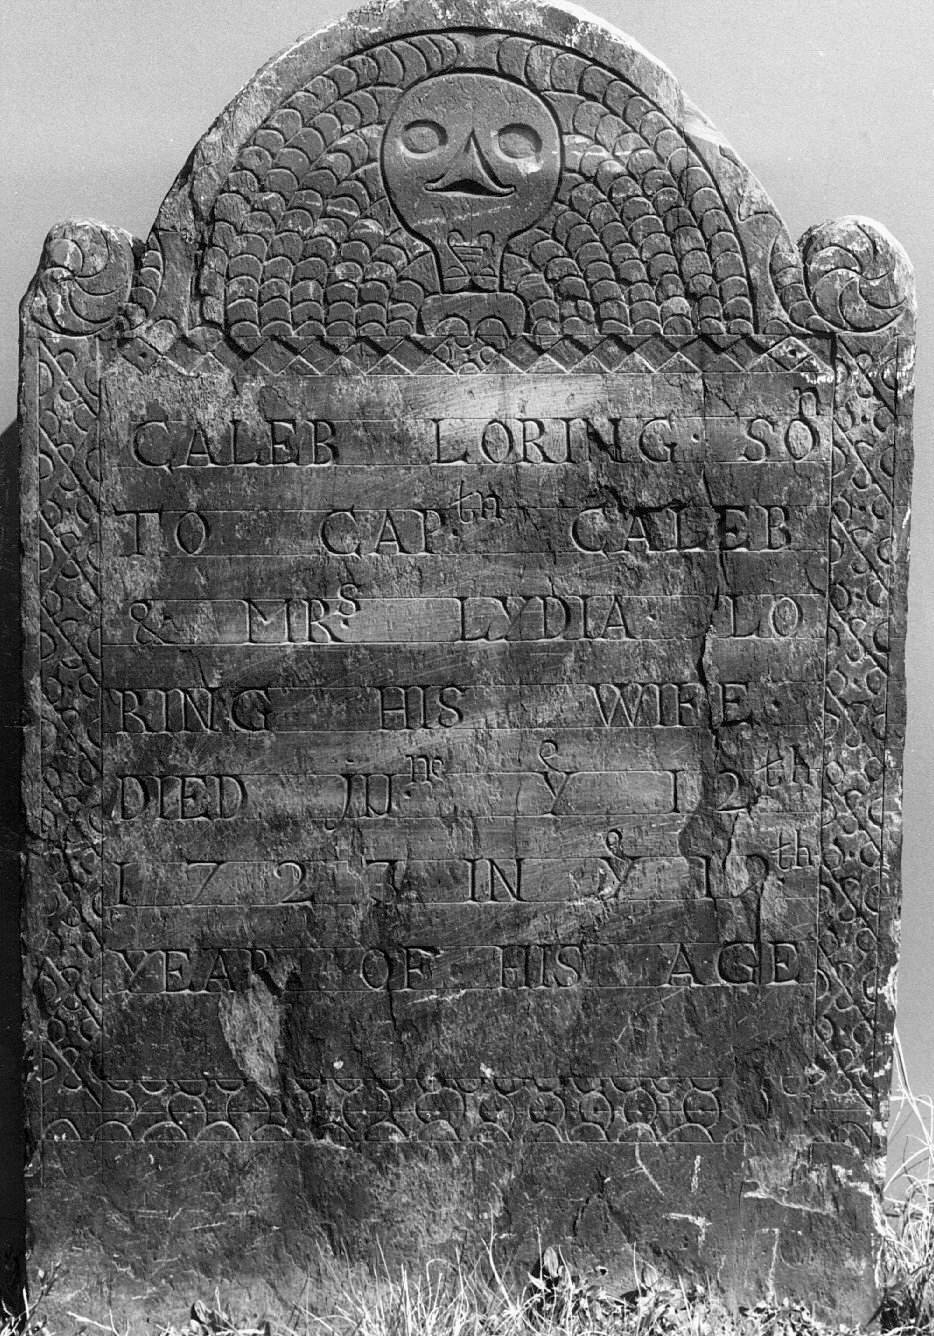 CALEB LORING · Soⁿ
TO CAPᵗⁿ CALEB
& MRˢ LYDIA · LO
RING HIS WIFE ·
DIED JUⁿᵉ yᵉ 12ᵗʰ
1727 IN yᵉ 19ᵗʰ
YEAR OF HIS AGE